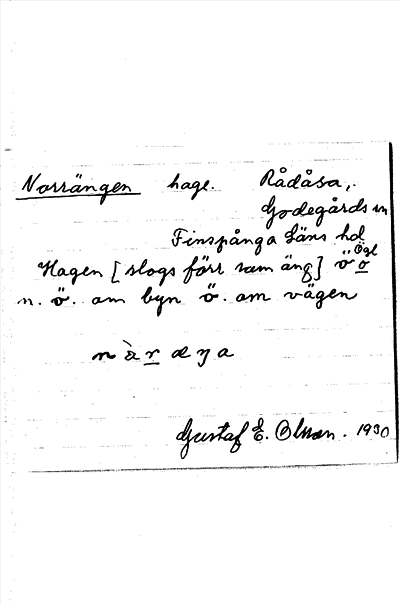 Norrängen hage. Rådåsa,.
Godegårds sn
Finspånga Läns hd
Ögl
Hagen [slogs förr som äng] ö o
n. ö. om byn ö. om vägen
Gustaf E. Olsson. 1930